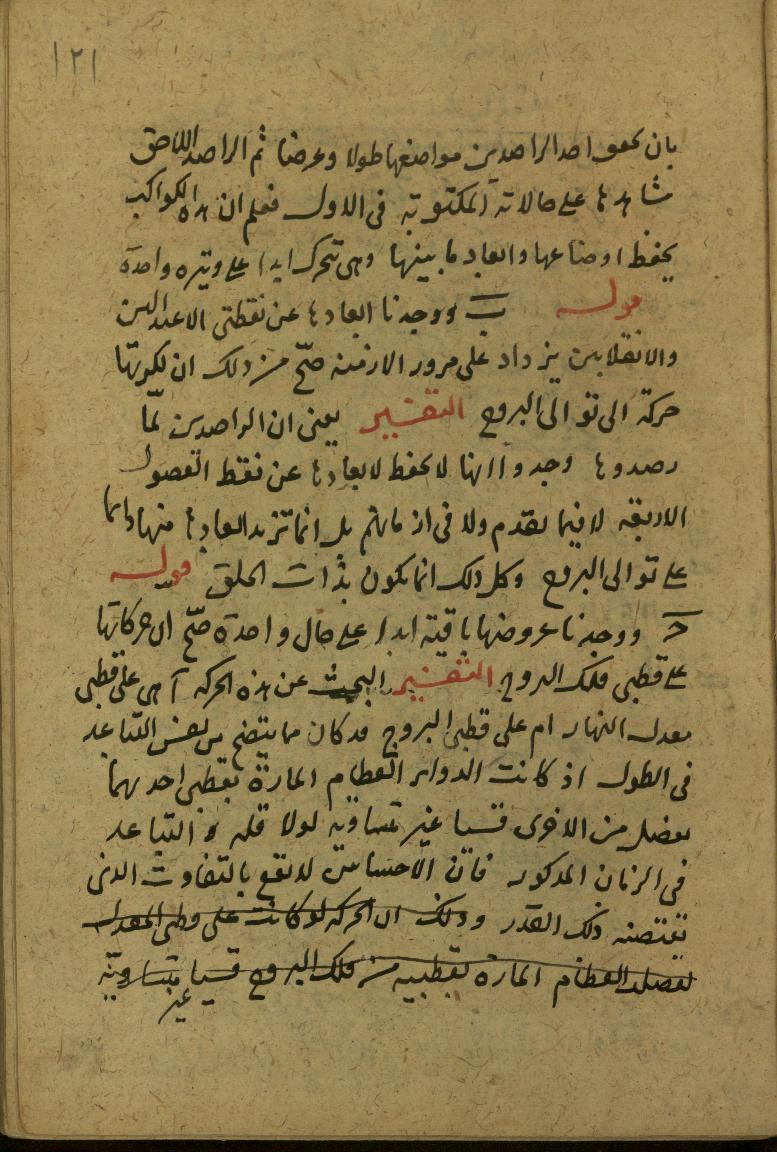 ١٢١
بان يحقق احد الراصدين مواضعها طولا وعرضا ثم الراصد اللاحق
شاهدها على حالاته المكتوبة فى الاول فعلم ان هذه الكواكب
يحفظ اوضاعها وابعاد ما بينها وهى تتحرك ابدا على وتيره واحدة
قوله ب ووجدنا ابعادها عن نقطتى الاعتدالين
والانقلابين يزداد على مرور الازمنه صحّ من ذلك ان لكريتها
حركة الى توالى البروج التفسير يعنى ان الراصدين لمّا
رصدوها وجدوا انها لا يحفظ لابعادها عن نقط الفصول
الاربعه لا فيما تقدم ولا فى ازمانهم بل انما تزيد ابعادها منها دائما
على توالى البروج وكل ذلك انما يكون بذات الحلق قوله
ج ووجدنا عروضها باقية ابدا على حال واحدة صحّ ان حركاتها
على قطبى فلك البروج التفسير البحث عن هذه الحركه أ هى على قطبى
معدل النهار ام على قطبى البروج قد كان مما يتضح من نفس التباعد
فى الطول اذ كانت الدوائر العظام المارة بقطبى احدهما
يفصل من الاخرى قسيا غير متساويه لولا قله التباعد
فى الزمان المذكور فان الاحساس لا يقع بالتفاوت الذى
يقتضيه ذلك القدر وذلك ان الحركه لو كانت على قطبى المعدل
لفصلت العظام المارة بقطبيه من فلك البروج قسيا متساوية
غير